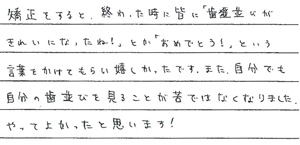 矯正をすると、終わった時に皆に「歯並びが
きれいになったね!」とか「おめでとう!」という
言葉をかけてもらい嬉しかったです。また、自分でも
自分の歯並びを見ることが苦ではなくなりました。
やってよかったと思います!